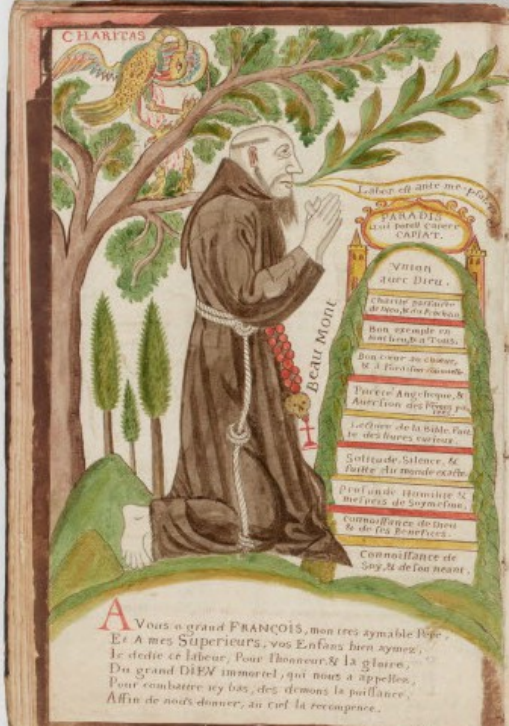 CHARITAS
Labor est ante me.
PARADIS
qui potest capere
CAPIAT.
Vnion
avec Dieu.
Charité parfaitte
de Dieu, & du Prochain
Bon exemple en
tout lieu, & a Tous.
Bon cœur au chœur,
& à l'oraison
Pureté Angelique, &
Auersion des
Lecture de la Bible, fuit
te des liures curieux.
Solitude, Silence, &
fuitte du monde exacte.
Profonde Humilité &
mespris de Soymesme.
Connoissance de Dieu
& de ses Benefices.
Connoissance de
Soy, & de son neant.
BEAU MONT
A Vous o grand FRANÇOIS, mon tres aymable Pere,
Et A mes Superieurs, vos Enfans bien aymez,
Ie dedie ce labeur, Pour l'honneur & la gloire,
Du grand DIEV immortel, qui nous a appellez,
Pour combattre icy bas, des demons la puissance,
Affin de nous donner, au ciel la recompence.